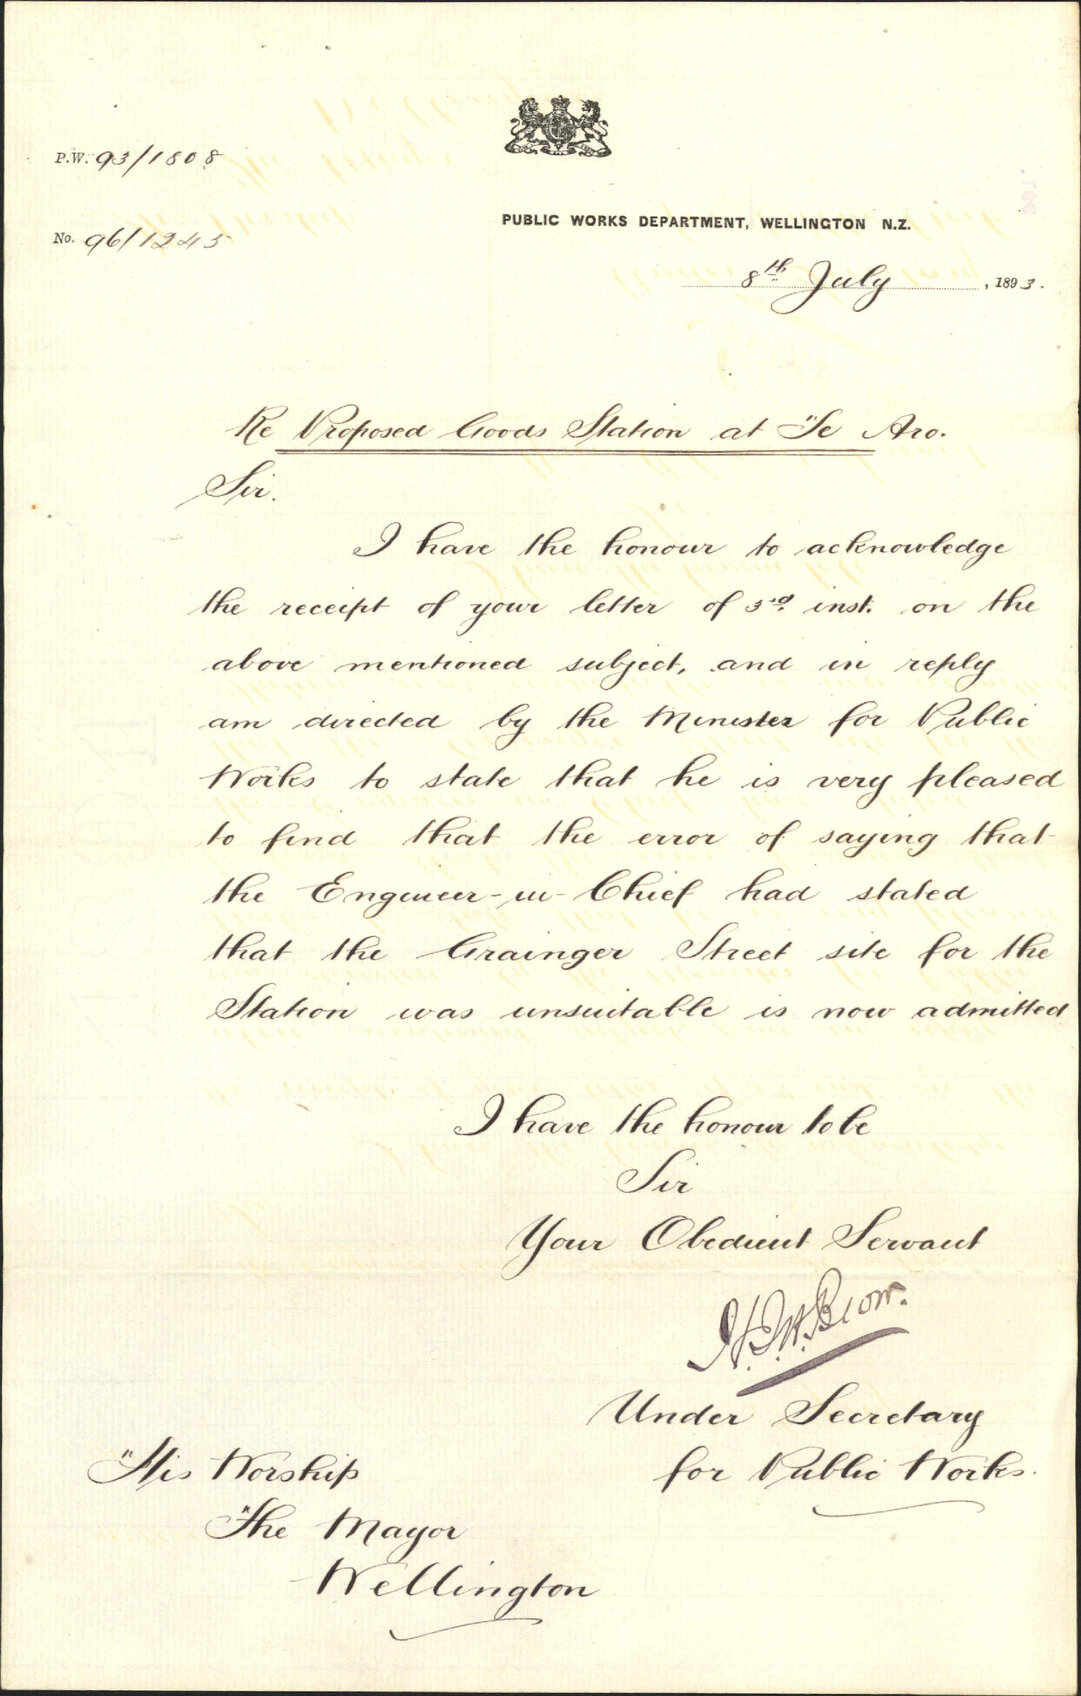 P.W. 93/1808
No. 96/1245
PUBLIC WORKS DEPARTMENT, WELLINGTON N.Z.
8th July, 1893.
Re Proposed Goods Station at Te Aro.
Sir.
I have the honour to acknowledge
the receipt of your letter of 3rd. inst. on the
above mentioned subject, and in reply
am directed by the Minister for Public
Works to state that he is very pleased
to find that the error of saying that
the Engineer-in-Chief had stated
that the Grainger Street site for the
Station was unsuitable is now admitted
I have the honour to be
Sir
Your Obedient Servant
H.J.H. Blow.
Under Secretary
for Public Works.
His Worship
The Mayor
Wellington